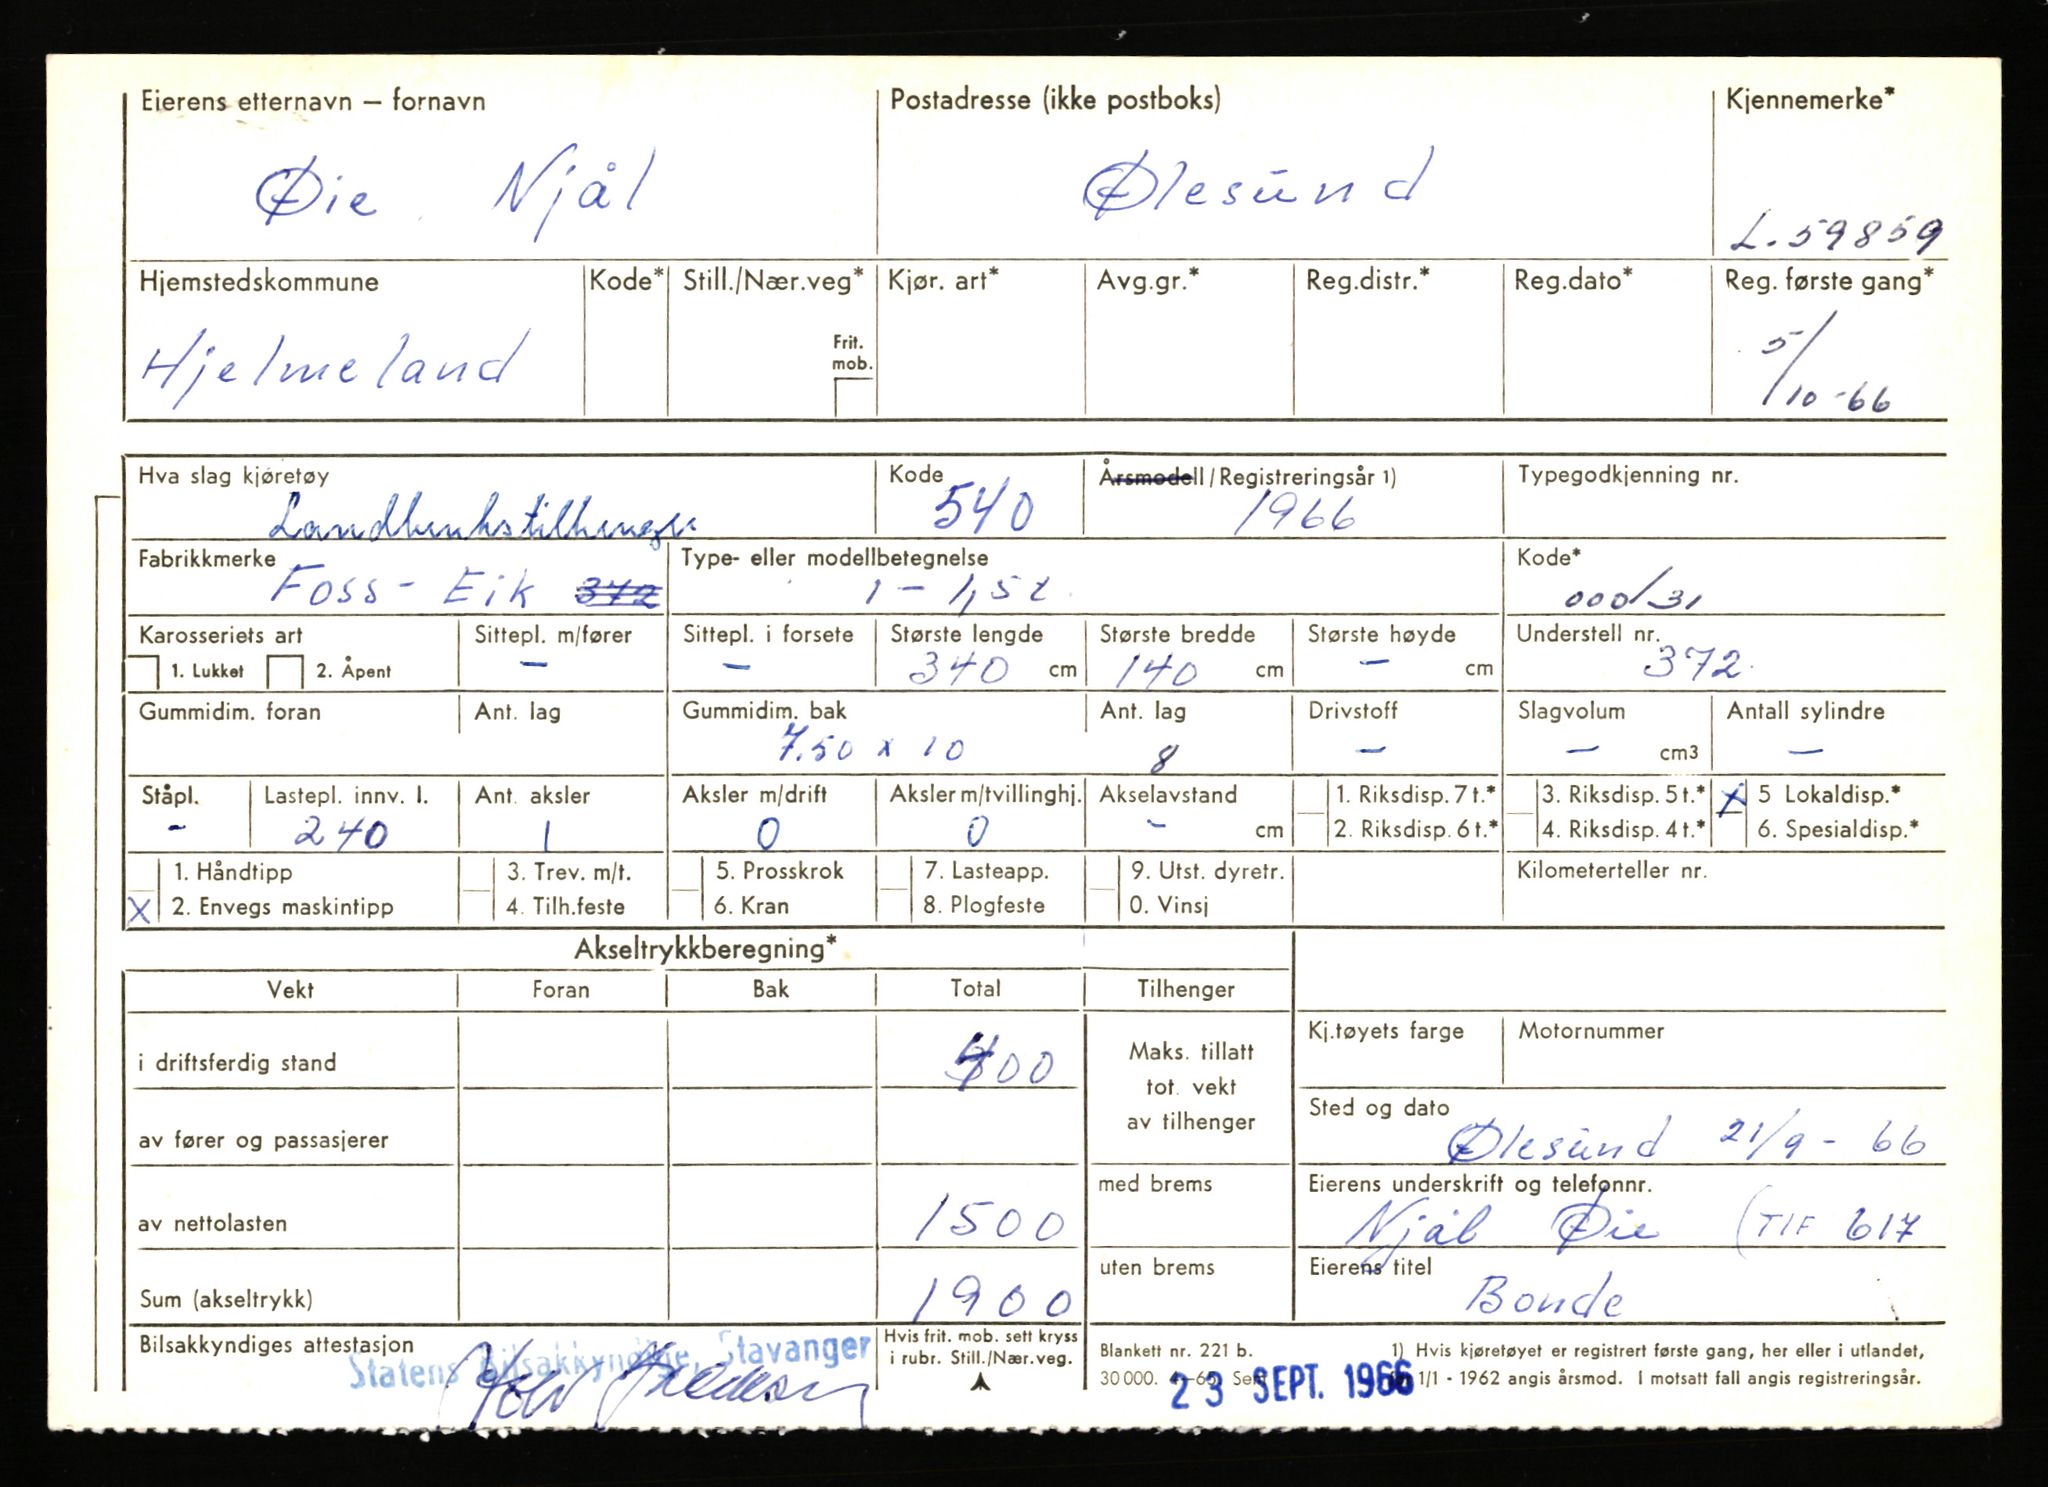 Eierens etternavn – fornavn Postadresse (ikke postboks) Kjennemerke*
Øie Njål Ølesund L-59859
Hjemstedskommune Kode* Still./Nær.veg* Kjør. art* Avg.gr.* Reg.distr.* Reg.dato* Reg. første gang*
Hjelmeland Frit. mob. 5/10-66
Hva slag kjøretøy Kode Årsmodell/Registreringsår 1) Typegodkjenning nr.
Landbrukstilhenger 540 1966
Fabrikkmerke Type- eller modellbetegnelse Kode*
Foss-Eik 372 1-1,5t 000/31
Karosseriets art Sittepl. m/fører Sittepl. i forsete Største lengde Største bredde Største høyde Understell nr.
1. Lukket 2. Åpent – – 340 cm 140 cm – cm 372
Gummidim. foran Ant. lag Gummidim. bak Ant. lag Drivstoff Slagvolum Antall sylindre
7.50 x 10 8 – – cm3 –
Ståpl. Lastepl. innv. l. Ant. aksler Aksler m/drift Aksler m/tvillinghj. Akselavstand 1. Riksdisp. 7 t.* 3. Riksdisp. 5 t.* X 5 Lokaldisp.*
- 240 1 0 0 - cm 2. Riksdisp. 6 t.* 4. Riksdisp. 4 t.* 6. Spesialdisp.*
1. Håndtipp 3. Trev. m/t. 5. Prosskrok 7. Lasteapp. 9. Utst. dyretr. Kilometerteller nr.
X 2. Envegs maskintipp 4. Tilh.feste 6. Kran 8. Plogfeste 0. Vinsj
Akseltrykkberegning*
Vekt Foran Bak Total Tilhenger
i driftsferdig stand 400 Maks. tillatt tot. vekt av tilhenger Kj.tøyets farge Motornummer
av fører og passasjerer Sted og dato
Ølesund 21/9-66
av nettolasten 1500 med brems Eierens underskrift og telefonnr.
Njål Øie (Tlf 617
Sum (akseltrykk) 1900 uten brems Eierens titel
Bonde
Bilsakkyndiges attestasjon Hvis frit. mob. sett kryss i rubr. Still./Nær.veg.
Statens Bilsakkyndige, Stavanger
Blankett nr. 221 b. 1) Hvis kjøretøyet er registrert første gang, her eller i utlandet,
30 000. 1/1 - 1962 angis årsmod. I motsatt fall angis registreringsår.
23 SEPT. 1966